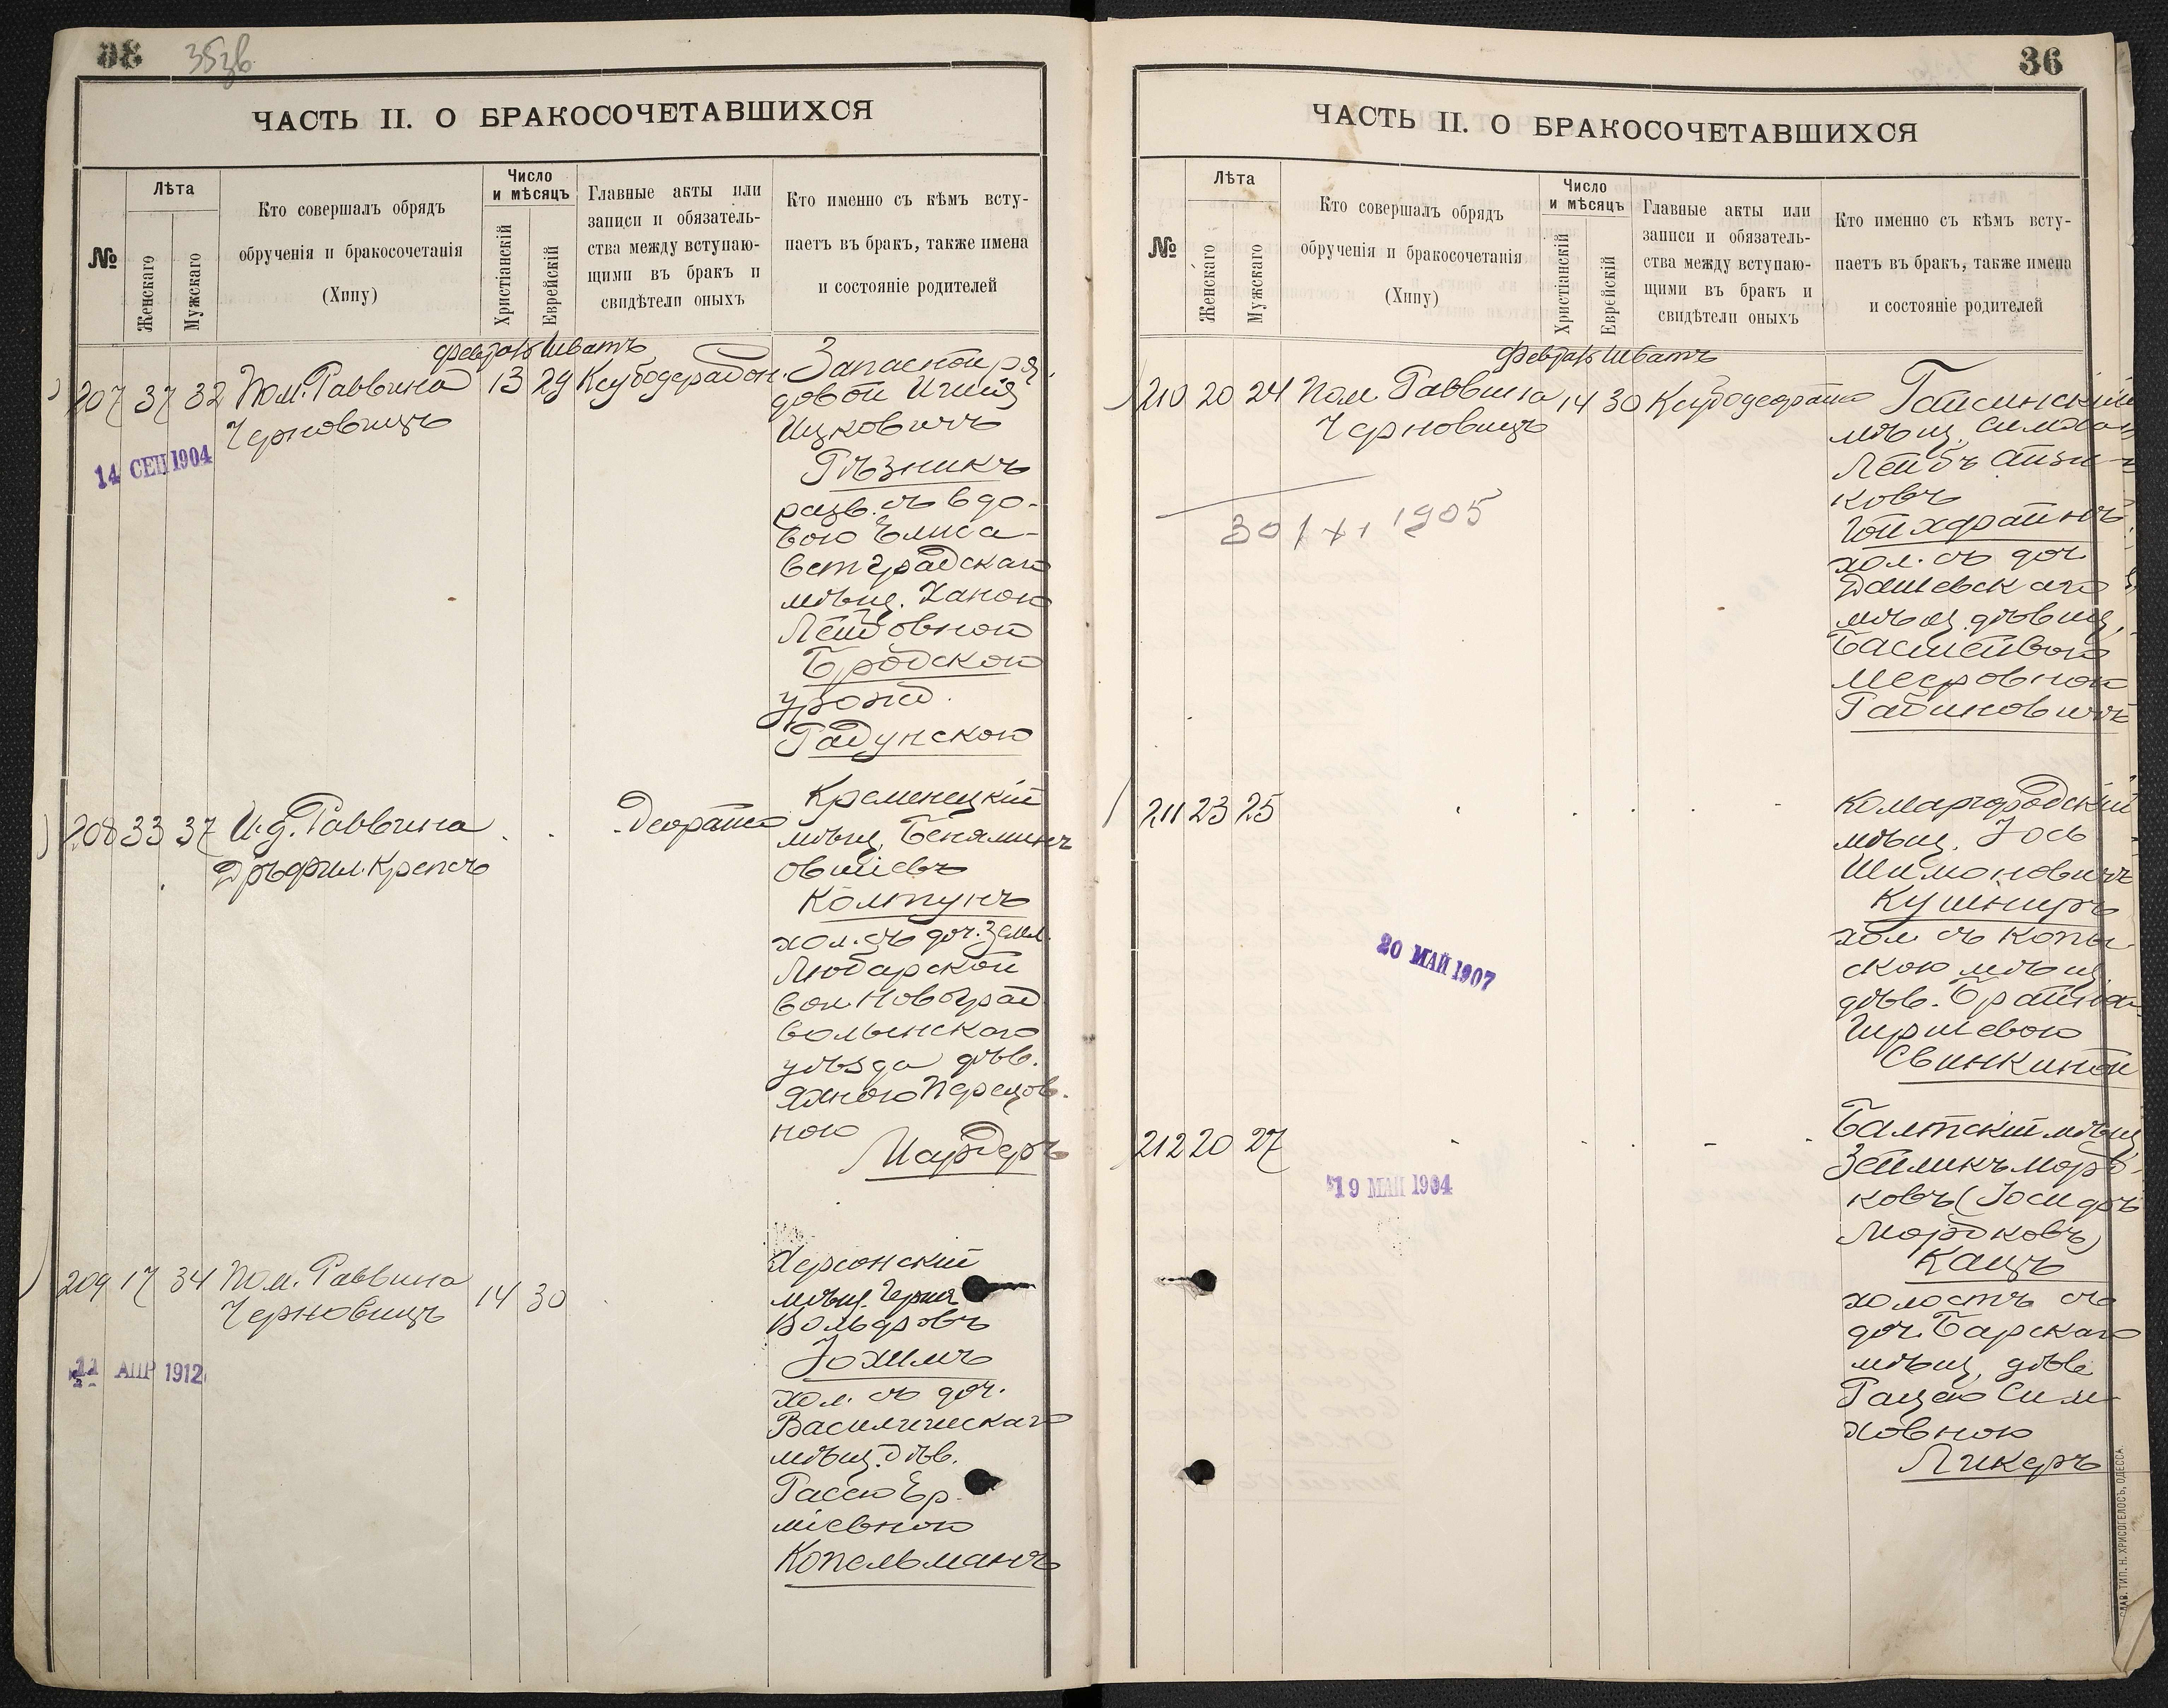 35зв
ЧАСТЬ II. О БРАКОСОЧЕТАВШИХСЯ
№
Лѣта
Женскаго
Мужскаго
Кто совершалъ обрядъ
обрученія и бракосочетанія
(Хипу)
Число
и мѣсяцъ
Христіанскій
Еврейскій
Главные акты или
записи и обязатель-
ства между вступаю-
щими въ бракъ и
свидѣтели оныхъ
Кто именно съ кѣмъ всту-
паетъ въ бракъ, также имена
и состояніе родителей
Шватъ
207 37 32 Пом. Раввина 13 29
Черновицъ
Запасной ря-
довой
Ицковичъ
Рѣзникъ
разв. съ вдо-
вою Елиса-
ветградскаго
мѣщ. Ханою
Лейбовною
Бродскою
урожд.
Радунскою
14 СЕН 1904
208 33 37 И.д. Раввина
Дръ фил. Крепсъ
Кременецкій
мѣщ. Беняминъ
Овшіевъ
Колтунъ
хол. съ доч. земл.
Любарской
вол. Новоград
волынскаго
уѣзда дѣв.
Перецов-
ною
209 17 34 Пом. Раввина 14 30
Черновицъ
Херсонскій
мѣщ. Герша
Вольфовъ
Іохимъ
хол. съ доч.
мѣщ. дѣв.
Рассею Ер-
міевною
Копельманъ
11 АПР 1912
36
ЧАСТЬ II. О БРАКОСОЧЕТАВШИХСЯ
№
Лѣта
Женскаго
Мужскаго
Кто совершалъ обрядъ
обрученія и бракосочетанія
(Хипу)
Число
и мѣсяцъ
Христіанскій
Еврейскій
Главные акты или
записи и обязатель-
ства между вступаю-
щими въ бракъ и
свидѣтели оныхъ
Кто именно съ кѣмъ всту-
паетъ въ бракъ, также имена
и состояніе родителей
Шватъ
210 20 24 Пом. Раввина 14 30
Черновицъ
Гайсинскій
мѣщ.
Лейбъ Айзи-
ковъ
хол. съ доч.
Дашевскаго
мѣщ. дѣвиц.
Басшейвою
Меeровною
Рабиновичъ
30/XI 1905
211 23 25
Комаргородскій
мѣщ. Іось
Шимоновичъ
Кушниръ
хол. съ Копы-
скою мѣщ.
дѣв. Брайною
Гиршевою
Свинкиной
20 МАЙ 1907
212 20 27
Балтскій мѣщ.
Зейликъ Морд-
ковъ (Іосифъ
Мордковъ)
Кацъ
холостъ съ
доч. Барскаго
мѣщ. дѣв.
Рацею Сим-
ховною
Ликеръ
19 МАЙ 1904
СЛАВ. ТИП. Н. ХРИСОГЕЛОСЪ, ОДЕССА.